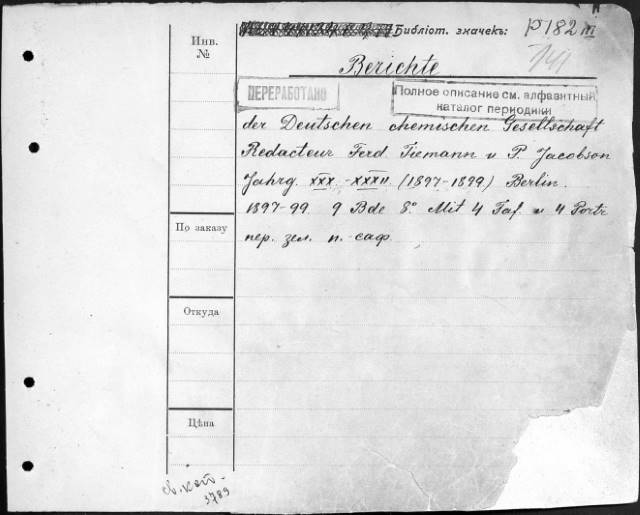 Библіот. значекъ: P 182 III
Инв.
№
Berichte
ПЕРЕРАБОТАНО
Полное описание см. алфавитный
каталог периодики
der Deutschen chemischen Gesellschaft
Redacteur Ferd. Tiemann u P. Jacobson
Jahrg. XXX - XXXII. (1897-1899) Berlin.
1897-99. 9 Bde 8° Mit 4 Taf. u 4 Portr
пер. зел. п. саф.
По заказу
Откуда
Цѣна
3789